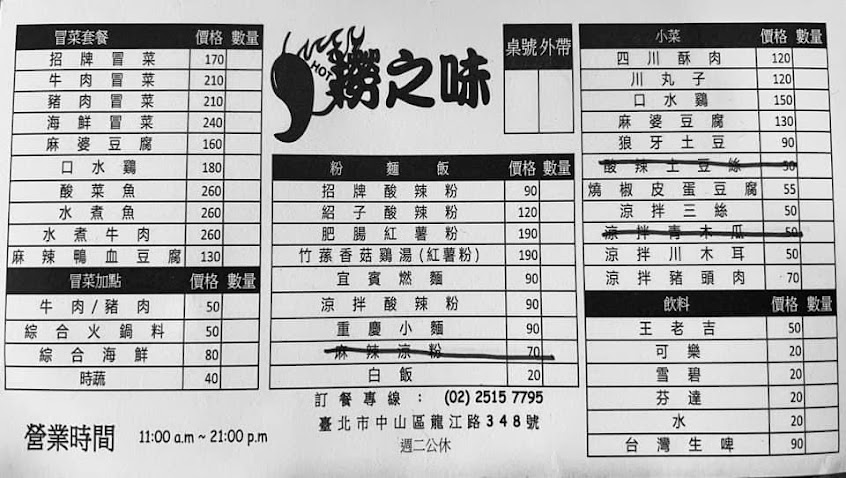 冒菜套餐 價格 數量
招牌冒菜 170
牛肉冒菜 210
豬肉冒菜 210
海鮮冒菜 240
麻婆豆腐 160
口水鷄 180
酸菜魚 260
水煮魚 260
水煮牛肉 260
麻辣鴨血豆腐 130
冒菜加點 價格 數量
牛肉/豬肉 50
綜合火鍋料 50
綜合海鮮 80
時蔬 40
營業時間 11:00 a.m ~ 21:00 p.m
HOT 撈之味
桌號 外帶
粉麵飯 價格 數量
招牌酸辣粉 90
紹子酸辣粉 120
肥腸紅薯粉 190
竹蓀香菇鷄湯(紅薯粉) 190
宜賓燃麵 90
涼拌酸辣粉 90
重慶小麵 90
麻辣涼粉 70
白飯 20
訂餐專線： (02) 2515 7795
臺北市中山區龍江路348號
週二公休
小菜 價格 數量
四川酥肉 120
川丸子 120
口水鷄 150
麻婆豆腐 130
狼牙土豆 90
酸辣土豆絲 50
燒椒皮蛋豆腐 55
涼拌三絲 50
涼拌青木瓜 50
涼拌川木耳 50
涼拌豬頭肉 70
飲料 價格 數量
王老吉 50
可樂 20
雪碧 20
芬達 20
水 20
台灣生啤 90